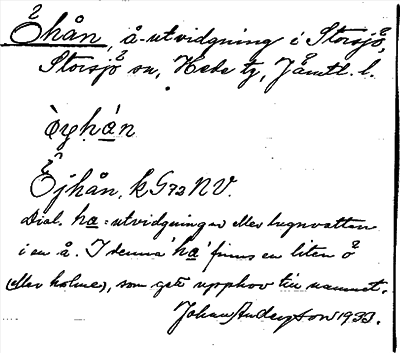 Öhån, å-utvidgning i Storsjö,
Storsjö sn, Hede tg, Jämtl. l.
òyhàn
Öjhån, k G73 NV.
Dial. ha = utvidgningar eller lugnvatten
i en å. I denna 'ha' finns en liten ö
(eller holme), som gett upphov till namnet.
Johan Anderzson 1933.